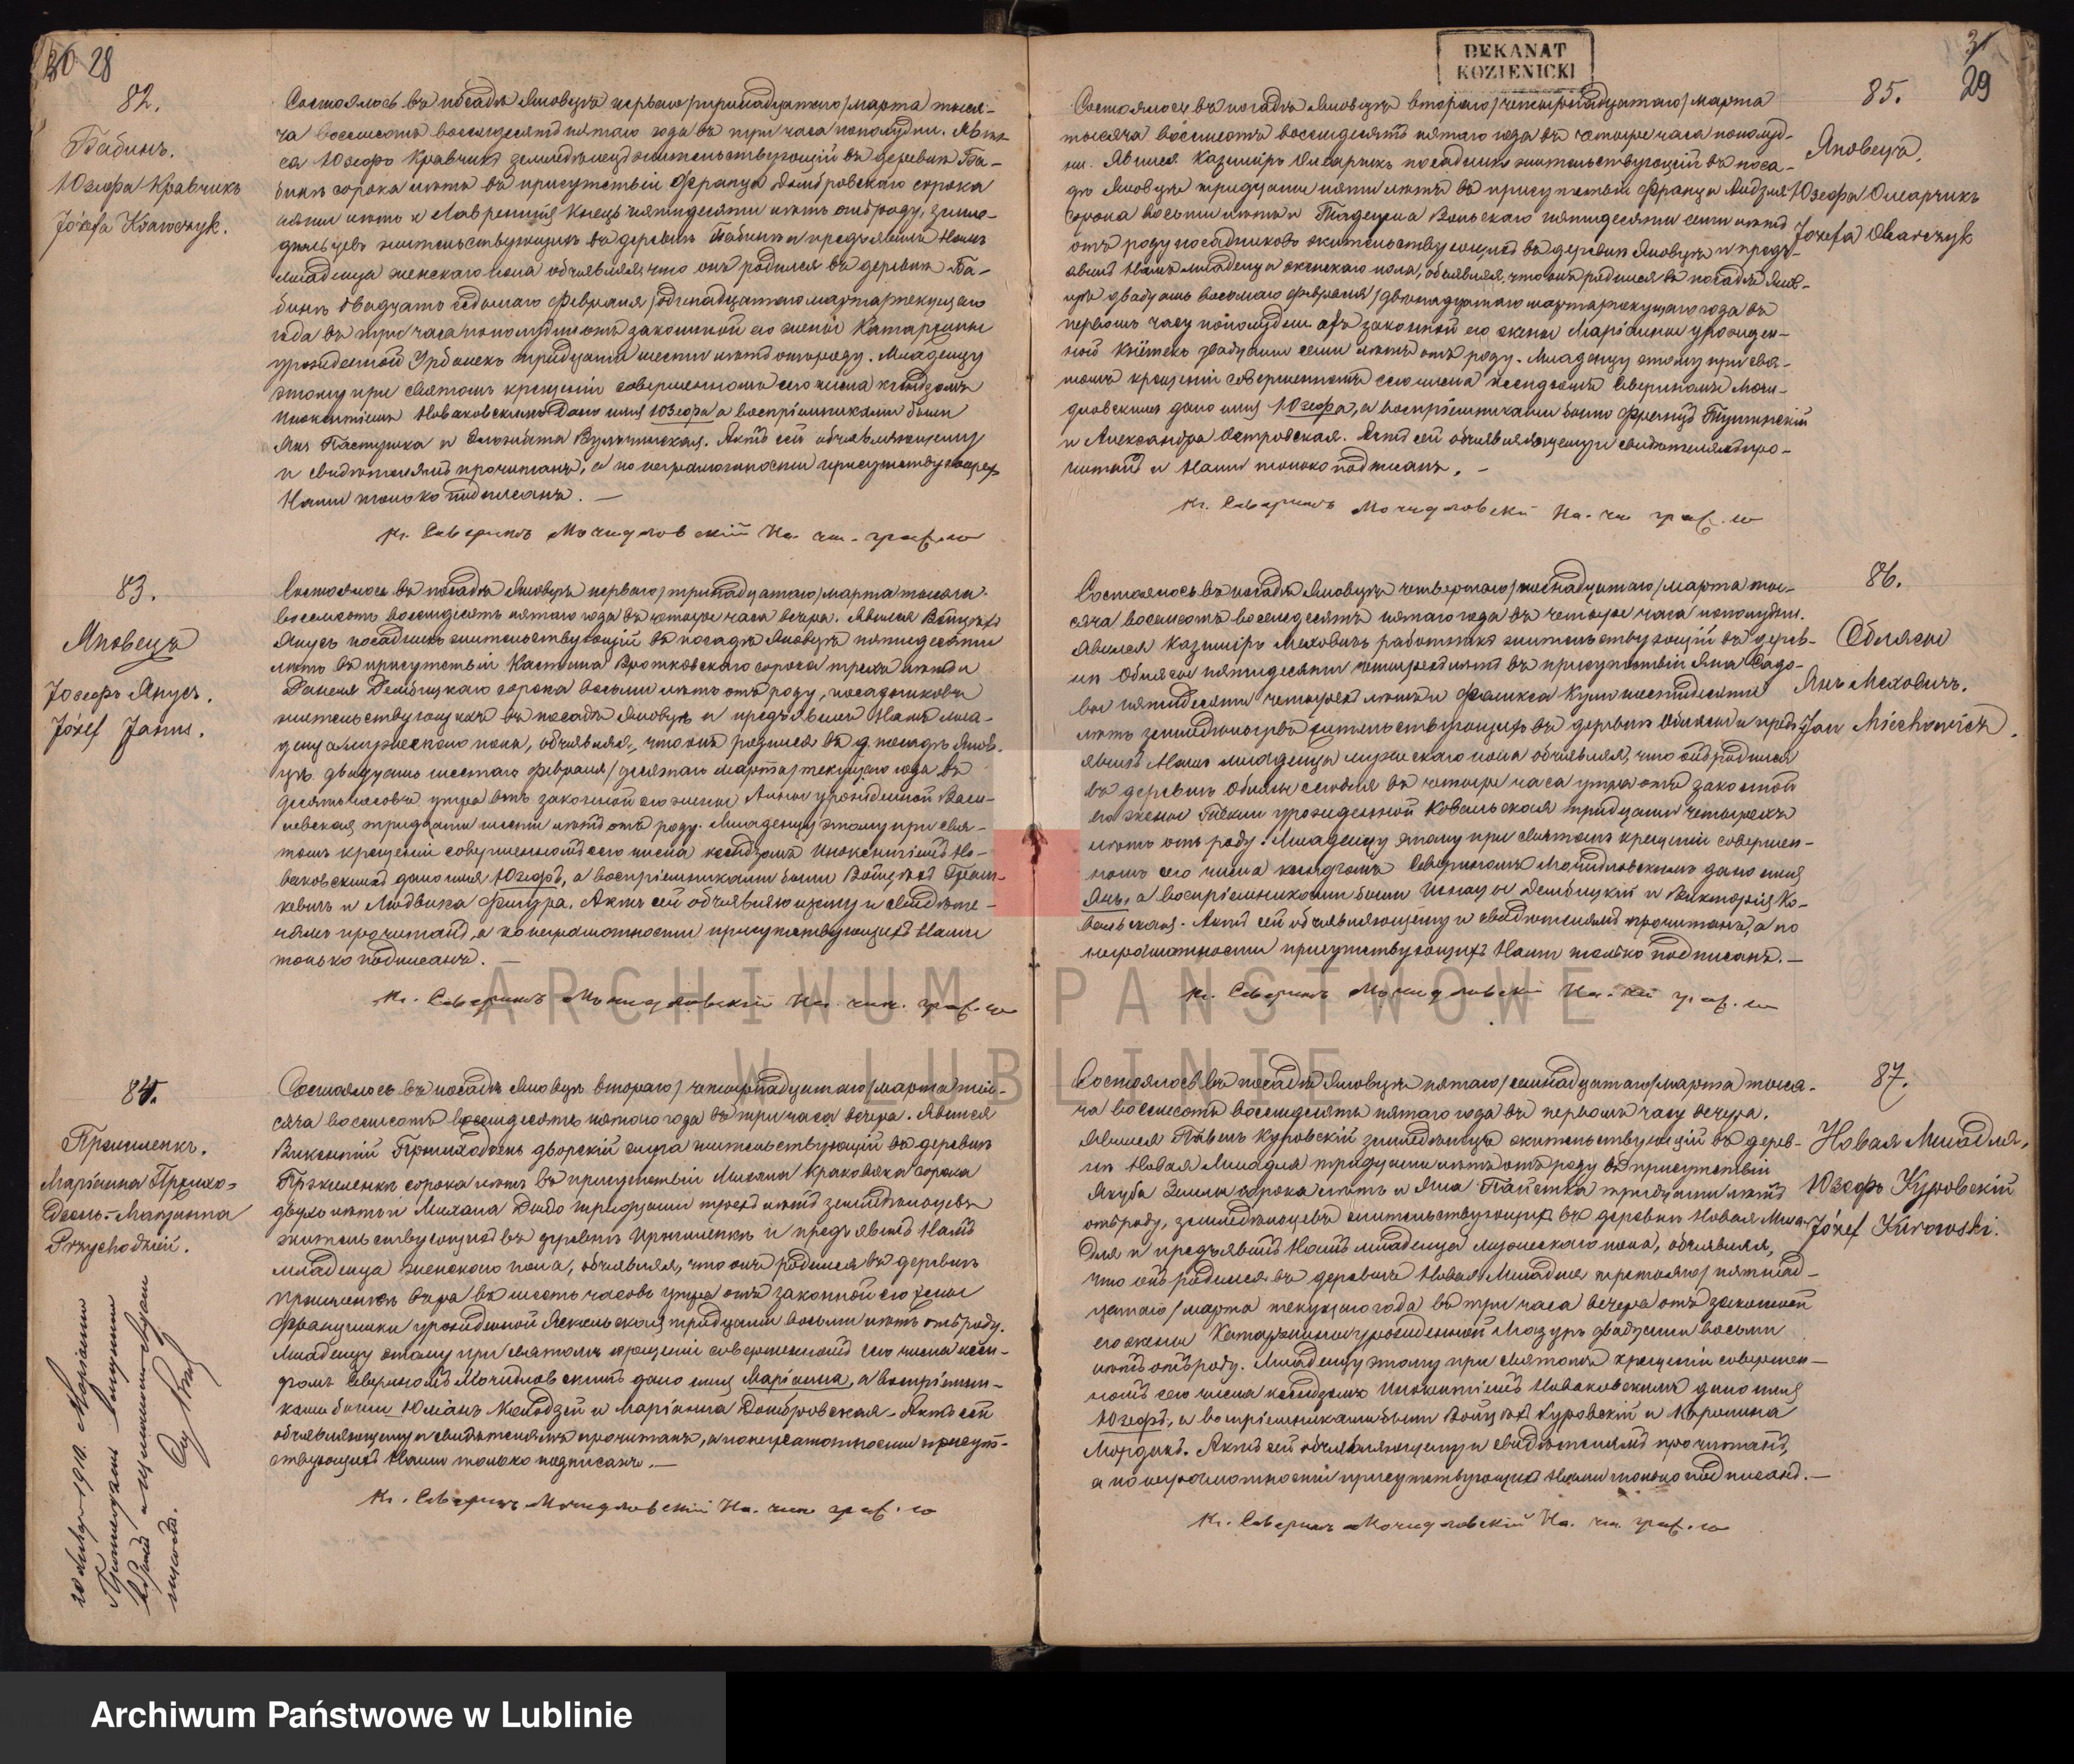 30 28
82.
Бабинъ.
Юзефа Кравчикъ
Józefa Krawczyk.
Состоялось въ посадѣ Яновцѣ перваго/тринадцатаго/марта тыся-
ча восемсотъ восемдесятъ пятаго года въ три часа пополудни. Явил-
ся Юзефъ Кравчикъ земледѣлецъ жительствующій въ деревнѣ Ба-
бинѣ сорока лѣтъ въ присутствіи Франца Домбровскаго сорока
лѣтъ и Лаврентія Кнецъ пятидесяти лѣтъ отъ роду, земле-
дѣльцевъ жительствующихъ въ деревнѣ Бабинѣ и предъявилъ Намъ
младенца женскаго пола объявляя, что онъ родился въ деревнѣ Ба-
бинѣ двадцать седьмаго февраля/одинадцатаго марта текущаго
года въ три часа пополудни отъ законной его жены Катаржины
урожденной Урбанекъ тридцати шести лѣтъ отъ роду. Младенцу
этому при святомъ крещеніи совершенномъ сего числа ксендзомъ
Инокентіемъ Новаковскимъ дано имя Юзефа, а воспріемниками были
Янъ Пастушка и Антонина. Актъ сей объявляющему
и свидѣтелямъ прочитанъ, а по неграмотности присутствующихъ
Нами только подписанъ. —
Кс. Северинъ Мочидловскій На. чи. граж. со
83.
Яновецъ
Юзефъ Янусъ.
Józef Janus.
Состоялось въ посадѣ Яновцѣ перваго/тринадцатаго/марта тысяча
восемсотъ восемдесятъ пятаго года въ четыре часа вечера. Явился Войцѣхъ
Янусъ посадникъ жительствующій въ посадѣ Яновцѣ пятидесяти
лѣтъ въ присутствіи Каетана Вротковскаго сорока трехъ лѣтъ и
Даніеля Дембицкаго сорока восьми лѣтъ отъ роду, посадниковъ
жительствующихъ въ посадѣ Яновцѣ и предъявилъ Намъ мла-
денца мужескаго пола, объявляя, что онъ родился въ посадѣ Янов-
цѣ двадцать шестаго февраля/десятаго марта/текущаго года въ
десять часовъ утра отъ законной его жены Анны урожденной Васи-
левская тридцати шести лѣтъ отъ роду. Младенцу этому при свя-
томъ крещеніи совершенномъ сего числа ксендзомъ Инокентіемъ Но-
ваковскимъ дано имя Юзефъ, а воспріемниками были Войцѣхъ
и Людвика Фигура. Актъ сей объявляющему и свидѣте-
лямъ прочитанъ, а по неграмотности присутствующихъ Нами
только подписанъ. —
Кс. Северинъ Мочидловскій На. чин. граж. со
84.
Пржиленкъ.
Маріанна Пржихо-
дзень.-Maryanna
Przychodzień.
Состоялось въ посадѣ Яновцѣ втораго/четырнадцатаго/марта ты-
сяча восемсотъ восемдесятъ пятаго года въ три часа вечера. Явился
Викентій Пржиходзень дворскій слуга жительствующій въ деревнѣ
Пржиленкѣ сорока лѣтъ въ присутствіи Михала Краковяка сорока
двухъ лѣтъ и Михала Дыдо тридцати трехъ лѣтъ земледѣльцевъ
жительствующихъ въ деревнѣ Пржиленкѣ и предъявилъ Намъ
младенца женскаго пола, объявляя, что онъ родился въ деревнѣ
Пржиленкѣ вчера въ шесть часовъ утра отъ законной его жены
Францишки урожденной Яскульская тридцати восьми лѣтъ отъ роду.
Младенцу этому при святомъ крещеніи совершенномъ сего числа ксен-
дзомъ Севериномъ Мочидловскимъ дано имя Маріанна, а воспріемни-
ками были Юліанъ Колодзей и Маріанна Домбровская. Актъ сей
объявляющему и свидѣтелямъ прочитанъ, а по неграмотности присут-
ствующихъ Нами только подписанъ. —
Кс. Северинъ Мочидловскій На. чин граж. со
1910. Маріанна
DEKANAT
KOZIENICKI
31
29
85.
Яновецъ.
Юзефа Олеарчикъ
Józefa Olearczyk
Состоялось въ посадѣ Яновцѣ втораго/четырнадцатаго/марта
тысяча восемсотъ восемдесятъ пятаго года въ четыре часа пополуд-
ни. Явился Казиміръ Олеарчикъ посадникъ жительствующій въ поса-
дѣ Яновцѣ тридцати пяти лѣтъ въ присутствіи Франца
сорока восьми лѣтъ и Тадеуша Вольскаго пятидесяти семи лѣтъ
отъ роду посадниковъ жительствующихъ въ деревнѣ Яновцѣ и предъ-
явилъ Намъ младенца женскаго пола, объявляя, что онъ родился въ посадѣ Янов-
цѣ двадцать восьмаго февраля/двѣнадцатаго марта текущаго года въ
первомъ часу пополудни отъ законной его жены Маріанны урожден-
ной Кнётекъ двадцати семи лѣтъ отъ роду. Младенцу этому при свя-
томъ крещеніи совершенномъ сего числа ксендзомъ Севериномъ Мочи-
дловскимъ дано имя Юзефа, а воспріемниками были Францъ
и Александра Островская. Актъ сей объявляющему и свидѣтелямъ про-
читанъ и Нами только подписанъ. —
Кс. Северинъ Мочидловскій На. чи граж. со
86.
Облясы
Янъ Меховичъ.
Jan Miechowicz.
Состоялось въ посадѣ Яновцѣ четвертаго/шестнадцатаго/марта ты-
сяча восемсотъ восемдесятъ пятаго года въ четыре часа пополудни.
Явился Казиміръ Меховичъ работникъ жительствующій въ дерев-
нѣ Облясы пятидесяти четырехъ лѣтъ въ присутствіи Яна Садо-
вое пятидесяти четырехъ лѣтъ и Феликса шестидесяти
лѣтъ земледѣльцевъ жительствующихъ въ деревнѣ Облясы и предъ-
явилъ Намъ младенца мужескаго пола объявляя, что онъ родился
въ деревнѣ Облясы сегодня въ четыре часа утра отъ законной
его жены урожденной Ковальская тридцати четырехъ
лѣтъ отъ роду. Младенцу этому при святомъ крещеніи совершен-
номъ сего числа ксендзомъ Севериномъ Мочидловскимъ дано имя
Янъ, а воспріемниками были Игнацы Дембицкій и Викторія Ко-
вальская. Актъ сей объявляющему и свидѣтелямъ прочитанъ, а по
неграмотности присутствующихъ Нами только подписанъ. —
Кс. Северинъ Мочидловскій На. чи граж. со
87.
Новая Миладля,
Юзефъ Куровскій
Józef Kurowski.
Состоялось въ посадѣ Яновцѣ пятаго/семнадцатаго/марта тыся-
ча восемсотъ восемдесятъ пятаго года въ первомъ часу вечера.
Явился Павелъ Куровскій земледѣлецъ жительствующій въ дерев-
нѣ Новая Миладля тридцати лѣтъ отъ роду въ присутствіи
Якуба Земли сорока лѣтъ и Яна тридцати лѣтъ
отъ роду, земледѣльцевъ жительствующихъ въ деревнѣ Новая Мила-
для и предъявилъ Намъ младенца мужескаго пола, объявляя,
что онъ родился въ деревнѣ Новая Миладля третьяго/пятнад-
цатаго/марта текущаго года въ три часа вечера отъ законной
его жены Катаржины урожденной Мазуръ двадцати восьми
лѣтъ отъ роду. Младенцу этому при святомъ крещеніи совершен-
номъ сего числа ксендзомъ Инокентіемъ Новаковскимъ дано имя
Юзефъ, а воспріемниками были Войцѣхъ Куровскій и Каролина
Мордакъ. Актъ сей объявляющему и свидѣтелямъ прочитанъ,
а по неграмотности присутствующихъ Нами только подписанъ. —
Кс. Северинъ Мочидловскій На. чи. граж. со
ARCHIWUM PAŃSTWOWE
W LUBLINIE
Archiwum Państwowe w Lublinie